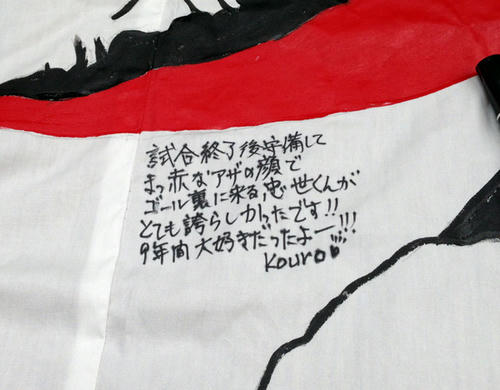 試合終了後守備して
まっ赤なアザの顔で
ゴール裏に来る忠世くんが
とても誇らしかったです!!
9年間大好きだったよー!!!
Kouro